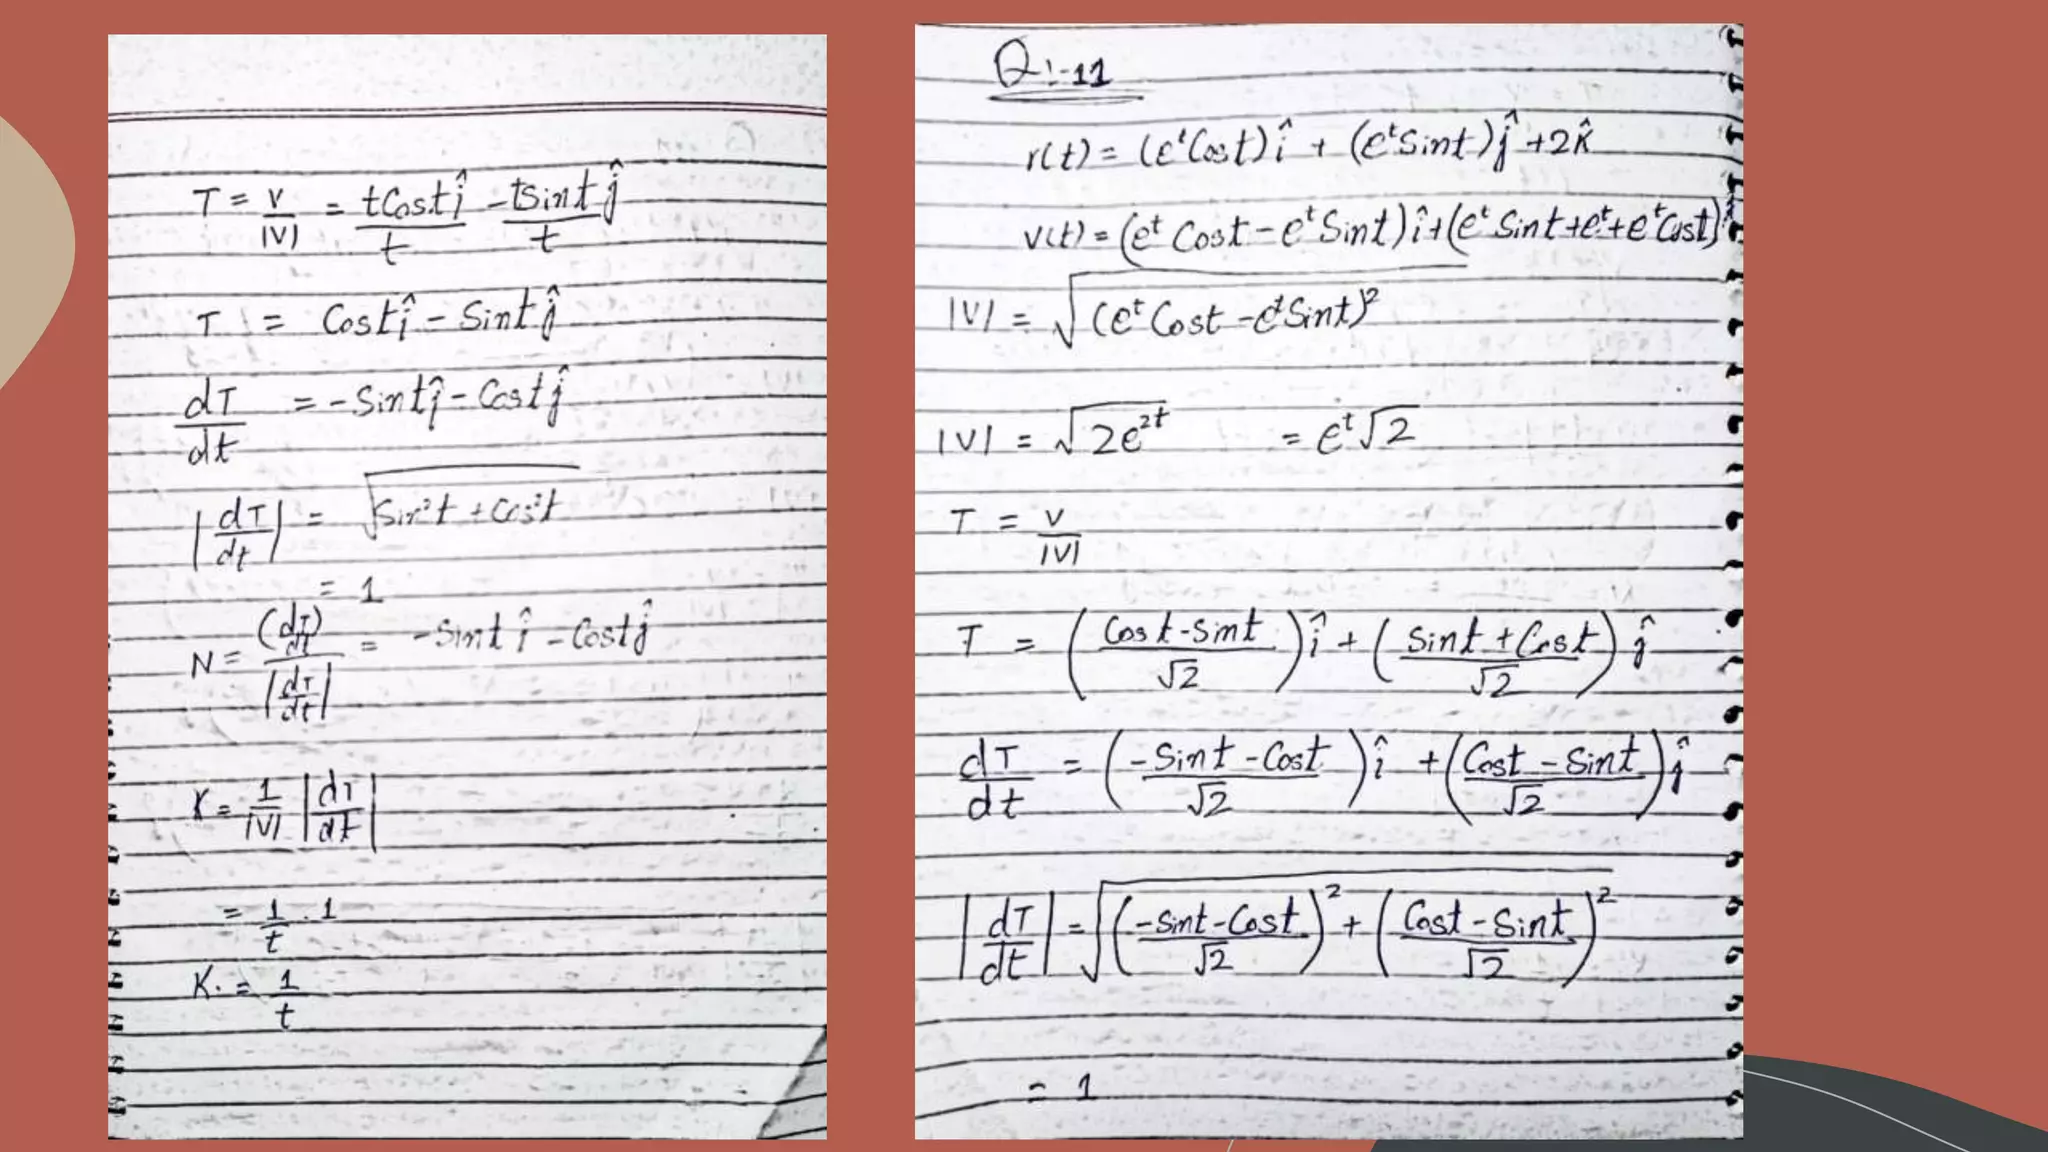 T = v/|V| = tCost î/t - tSint ĵ/t
T = Cost î - Sint ĵ
dT/dt = -Sint î - Cost ĵ
|dT/dt| = √Sin²t + Cos²t
= 1
N = (dT/dt)/|dT/dt| = -Sint î - Cost ĵ
K = 1/|V| |dT/dt|
= 1/t . 1
K. = 1/t
Q:-11
r(t) = (eᵗCost) î + (eᵗSint) ĵ +2k̂
v(t) = (eᵗ Cost - eᵗ Sint) î + (eᵗ Sint+eᵗ+eᵗCost) ĵ
|V| = √(eᵗ Cost - eᵗSint)²
|V| = √2e²ᵗ = eᵗ√2
T = v/|V|
T = (Cost-Sint/√2) î + (Sint + Cost/√2) ĵ
dT/dt = (-Sint - Cost/√2) î + (Cost - Sint/√2) ĵ
|dT/dt| = √(-Sint-Cost/√2)² + (Cost - Sint/√2)²
= 1